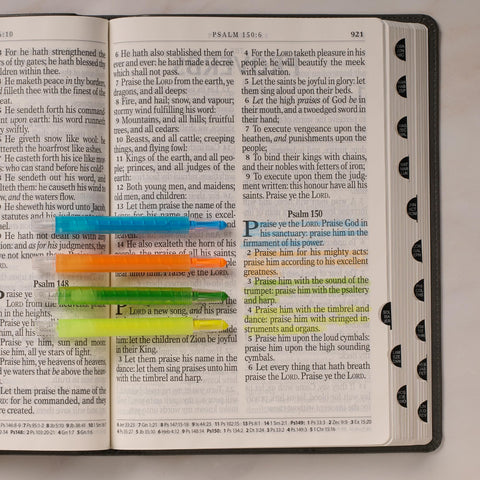 6:10
PSALM 150:6
921
3 For he hath strengthened the
rs of thy gates; he hath blessed thy
ildren within thee.
He maketh peace in thy borders,
filleth thee with the finest of the
eat.
He sendeth forth his command
upon earth: his word runneth
swiftly.
He giveth snow like wool: he
ttereth the hoarfrost like ashes.
He casteth forth his ice like mors
who can stand before his cold?
He sendeth out his word, and
lteth them: he causeth his wind to
w, and the waters flow.
He sheweth his word unto Jacob
statutes and his judgments
He hath not dealt so with an
ion: and as for his judgments, the
Psalm 148
raise ye
LORD from the heavens
Praise him in the heights.
Praise ye him, sun and moon
aise him, all ye stars of light.
Praise him, ye heavens of heavens
d ye waters that be above the heav
Let them praise the name of the
RD: for he commanded, and they
re created.
6 He hath also stablished them for
ever and ever: he hath made a decree
which shall not pass.
7 Praise the LORD from the earth, ye
dragons, and all deeps:
8 Fire, and hail; snow, and vapour;
stormy wind fulfilling his word:
9 Mountains, and all hills; fruitful
trees, and all cedars:
10 Beasts, and all cattle; creeping
things, and flying fowl:
11 Kings of the earth, and all peo-
ple; princes, and all judges of the
earth:
12 Both young men, and maidens;
old men, and children:
13 Let them praise the name of the
LORD: for his name alone is excel-
14 He also exalteth the horn of his
people, the praise of all his saints;
unto him. Praise ye the LORD.
LORD a new song, and his praise
him: let the children of Zion be joyful
in their King.
3 Let them praise his name in the
dance: let them sing praises unto him
with the timbrel and harp.
4 For the LORD taketh pleasure in his
people: he will beautify the meek
with salvation.
5 Let the saints be joyful in glory: let
them sing aloud upon their beds.
6 Let the high praises of God be in
their mouth, and a twoedged sword in
their hand;
7 To execute vengeance upon the
heathen, and punishments upon the
people;
8 To bind their kings with chains,
and their nobles with fetters of iron;
9 To execute upon them the judg-
ment written: this honour have all his
saints. Praise ye the LORD.
Psalm 150
Praise ye the LORD. Praise God in
his sanctuary: praise him in the
firmament of his power.
2 Praise him for his mighty acts:
praise him according to his excellent
greatness.
3 Praise him with the sound of the
trumpet: praise him with the psaltery
and harp.
4 Praise him with the timbrel and
dance: praise him with stringed in-
struments and organs.
5 Praise him upon the loud cymbals:
praise him upon the high sounding
cymbals.
6 Let every thing that hath breath
praise the LORD. Praise ye the LORD.